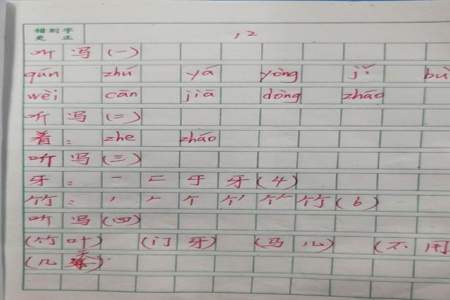 错别字
更正
12
听写(一)
qún zhú yá yòng jǐ bù
wèi cān jiā dòng zháo
听写(二)
着: zhe zháo
听写(三)
牙: 一 匚 于 牙(4)
竹: 丿 𠂉 个 竹(6)
听写(四)
(竹叶) (门牙) (马儿) (不用)
(几 )